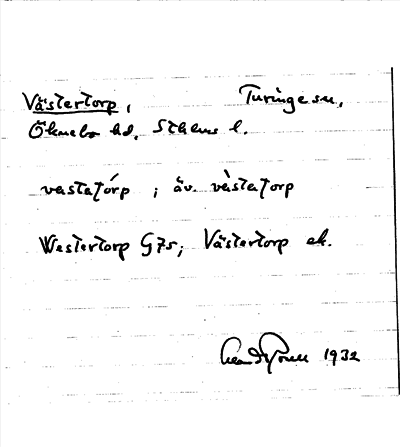 Västertorp, Turinge sn,
Öknebo hd, Sthlms l.
vastatórp ; äv. våstatorp
Westertorp G7s; Västertorp ek.
1932